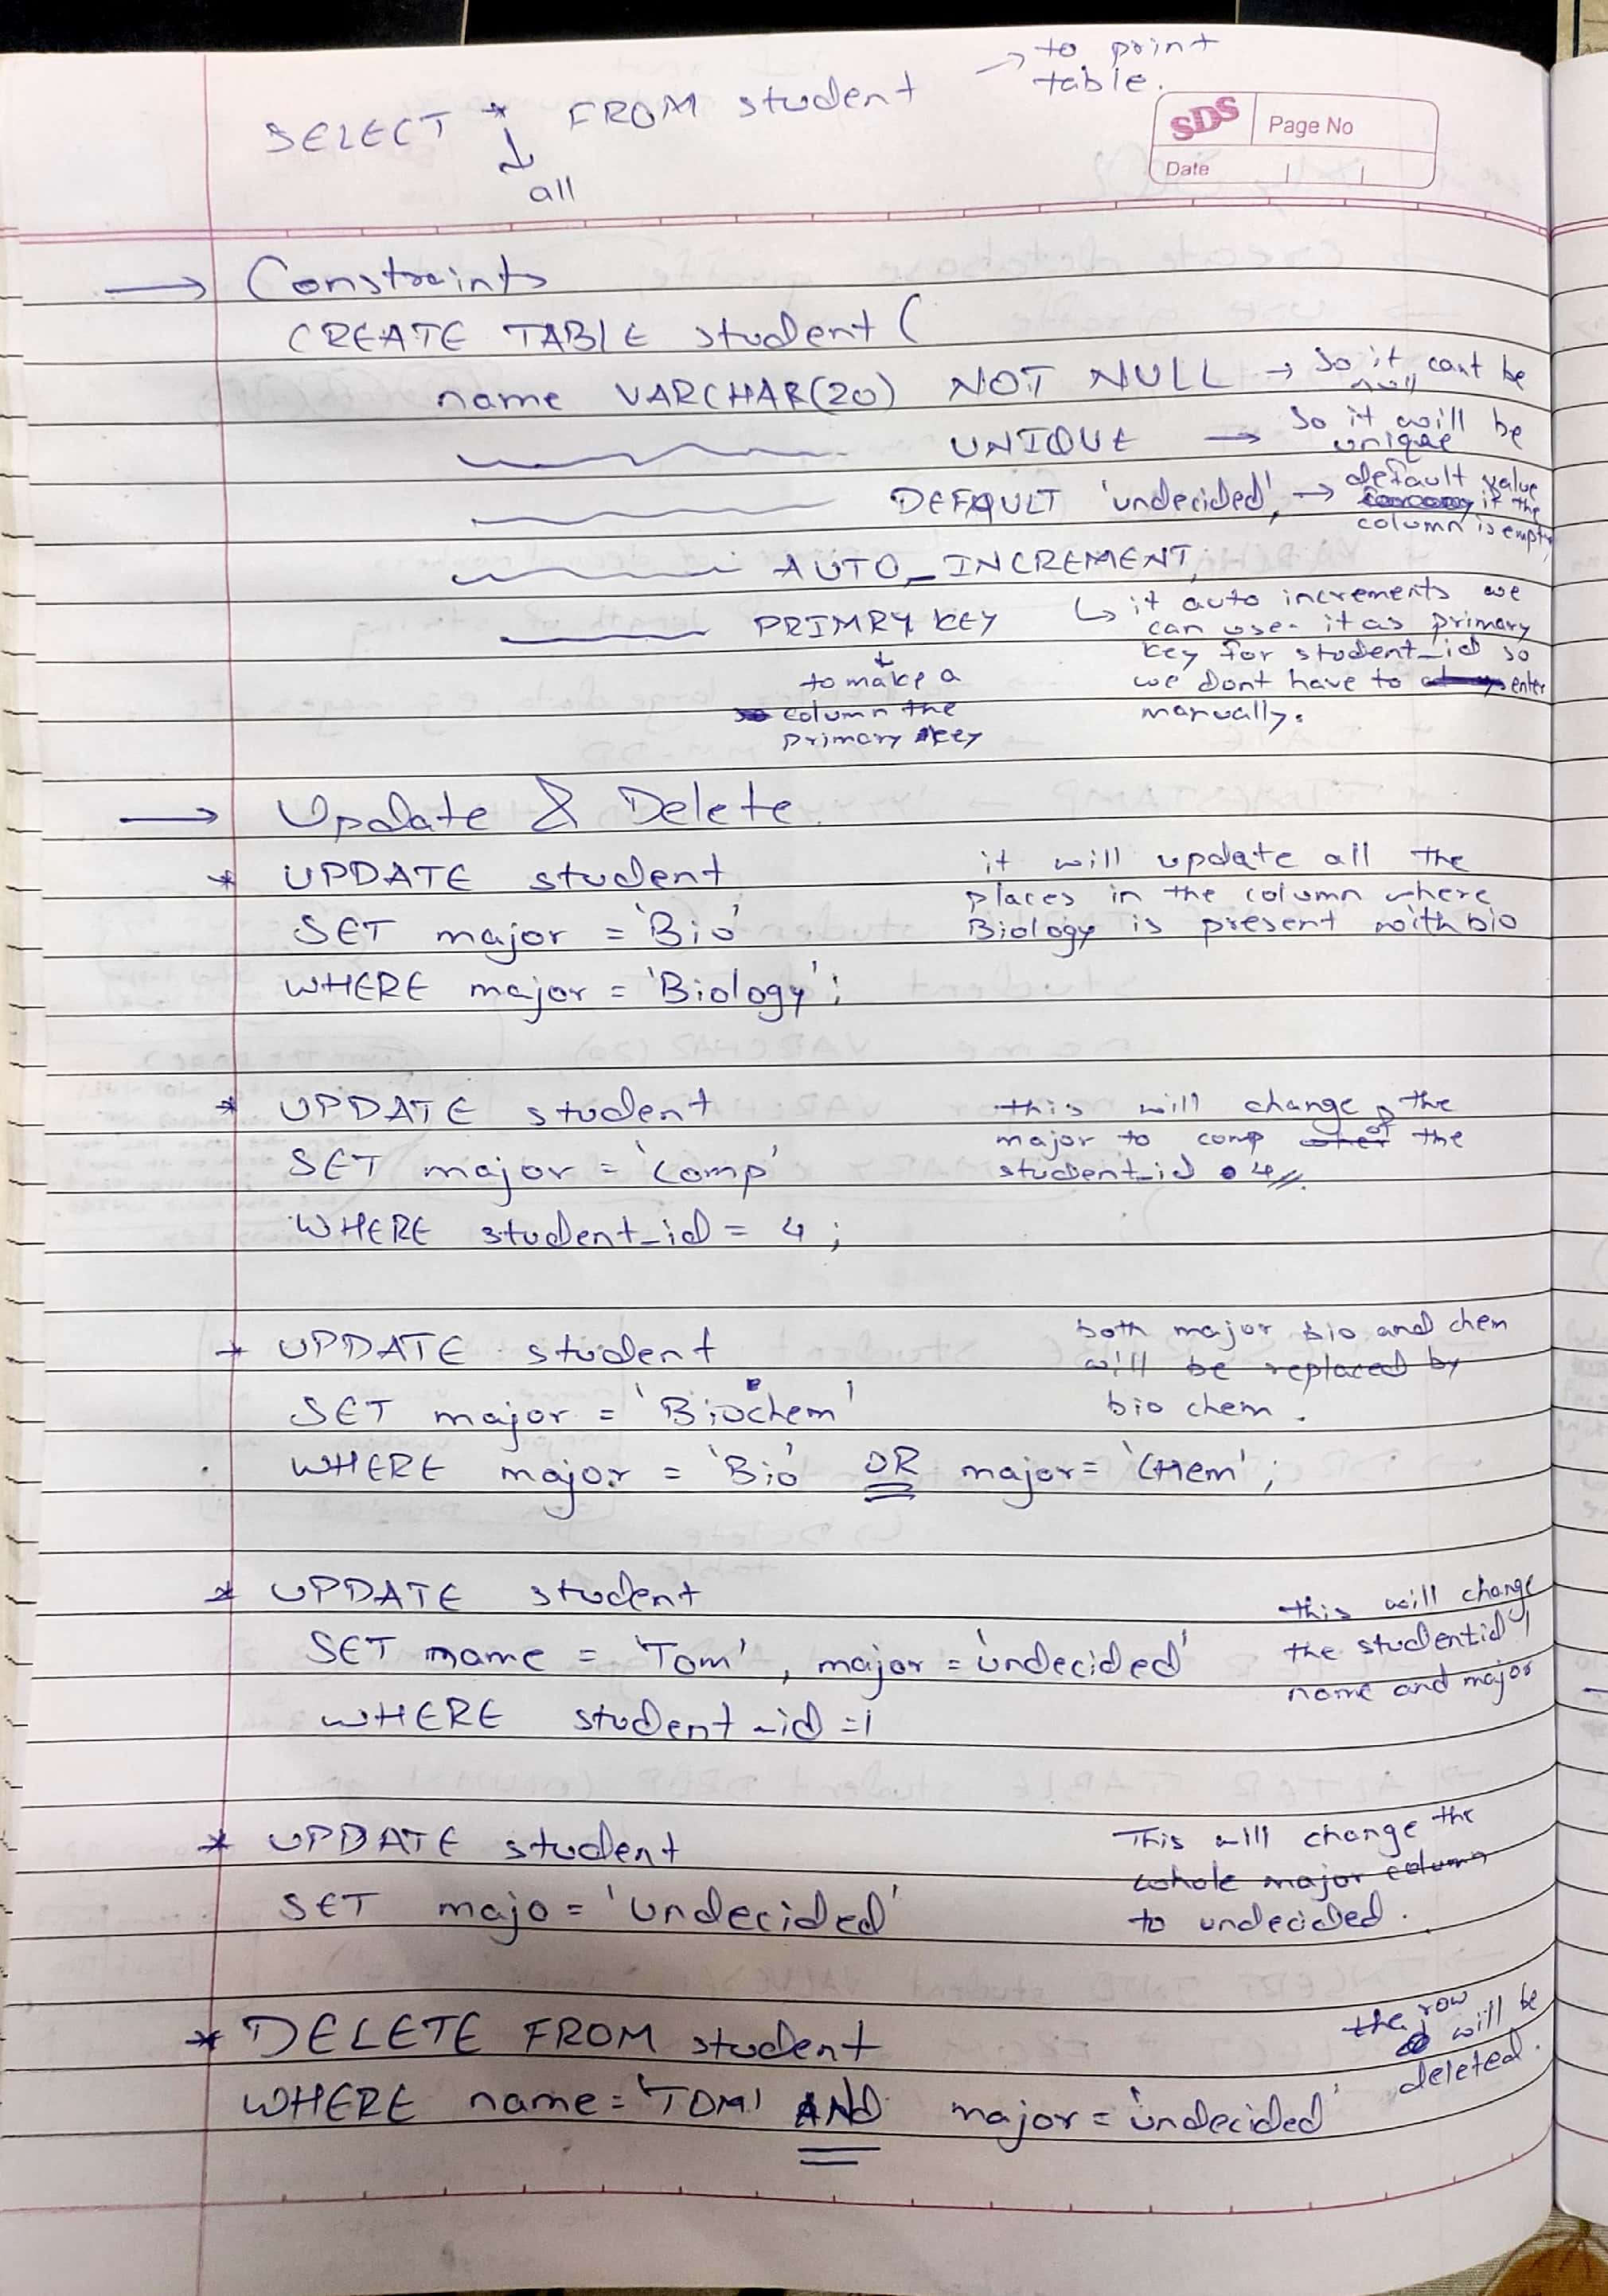 → to print
table.
SELECT * FROM student
↓
all
SDS Page No
Date
→ Constraints
CREATE TABLE student (
name VARCHAR(20) NOT NULL → so it cant be
null
UNIQUE → so it will be
unique
DEFAULT 'undecided', → default value
if the
column is empty
AUTO_INCREMENT,
PRIMRY KEY
↳ it auto increments we
can use it as primary
key for student_id so
we dont have to enter
manually.
↓
to make a
column the
primary key
→ Update & Delete
* UPDATE student
SET major = 'Bio'
WHERE major = 'Biology';
it will update all the
places in the column where
Biology is present with bio
* UPDATE student
SET major = 'comp'
WHERE student_id = 4 ;
this will change the
major to comp of the
student_id 4
* UPDATE student
SET major = 'Biochem'
WHERE major = 'Bio' OR major = 'CHem' ;
both major bio and chem
will be replaced by
bio chem .
* UPDATE student
SET name = 'Tom' , major = 'undecided'
WHERE student_id =1
this will change
the studentid 1
name and major
* UPDATE student
SET majo = 'undecided'
This will change the
whole major column
to undecided .
* DELETE FROM student
WHERE name = 'TOM' AND major = 'undecided'
the row
will be
deleted.